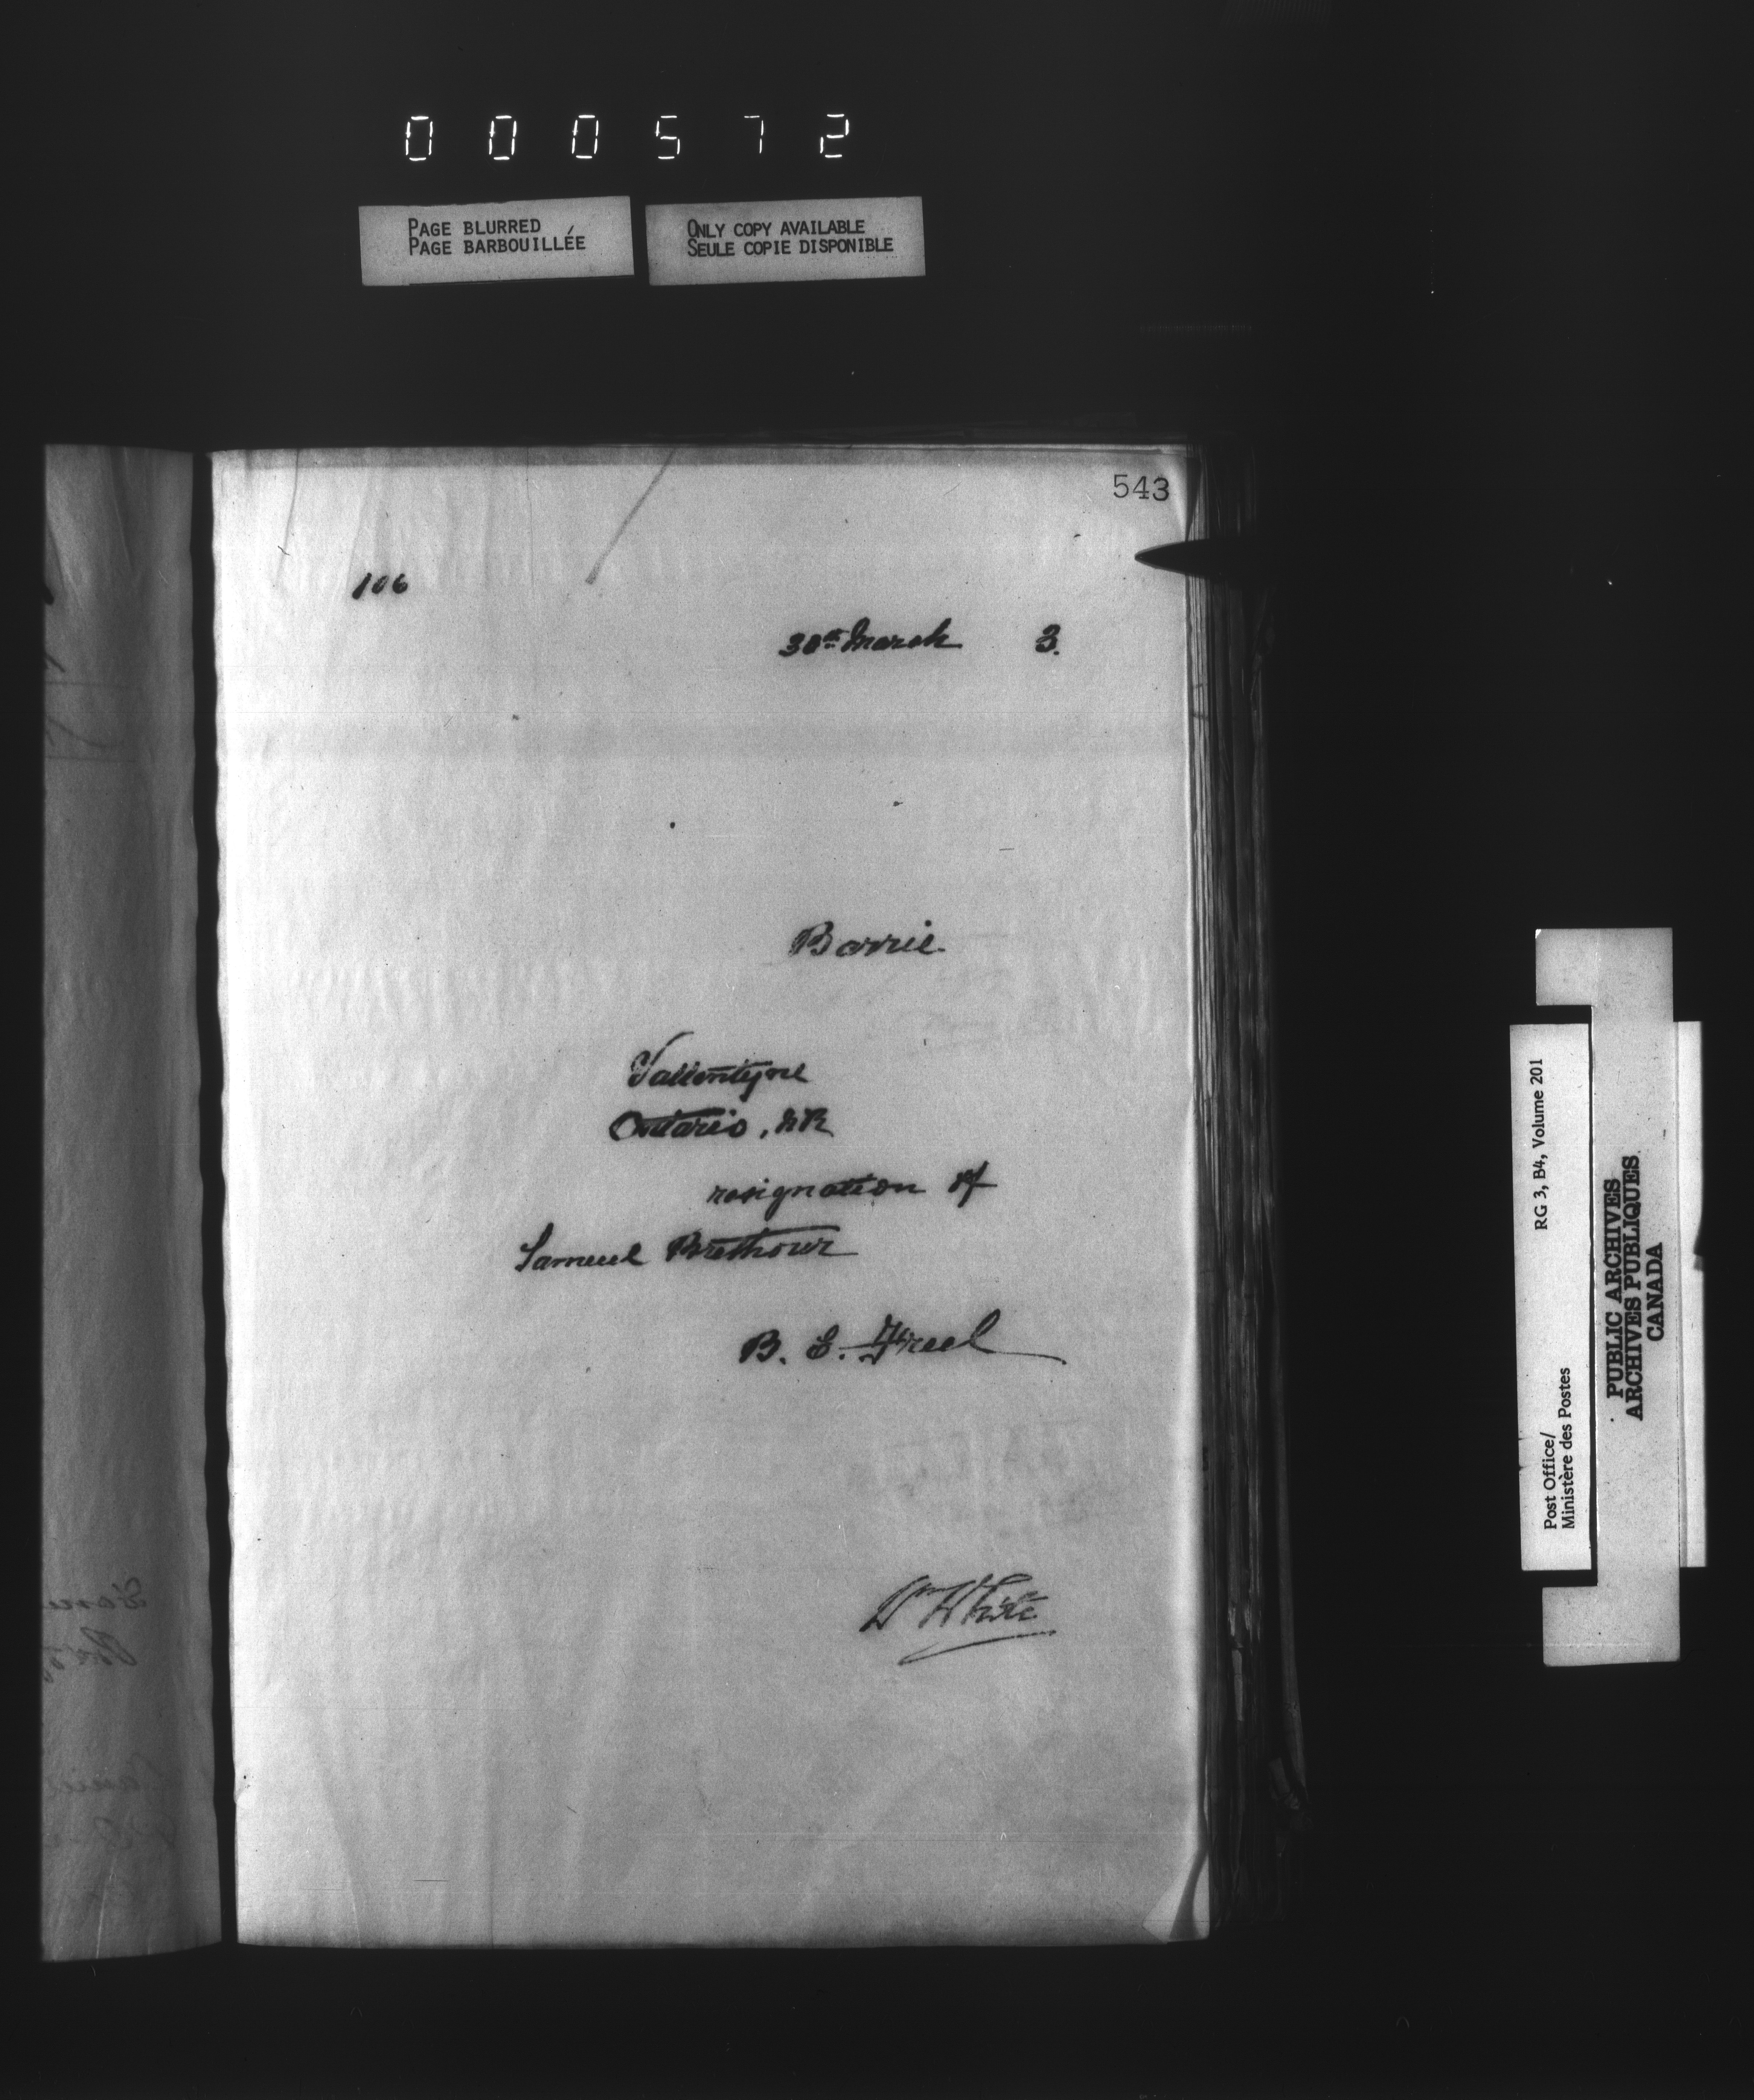 000572
PAGE BLURRED
PAGE BARBOUILLÉE
ONLY COPY AVAILABLE
SEULE COPIE DISPONIBLE
543
106
30th March 3.
Barrie
Vallentyne
Ontario, NR
resignation of
Samuel Brethour
B. E. Freel
Wm White
Post Office/
Ministère des Postes
RG 3, B4, Volume 201
PUBLIC ARCHIVES
ARCHIVES PUBLIQUES
CANADA